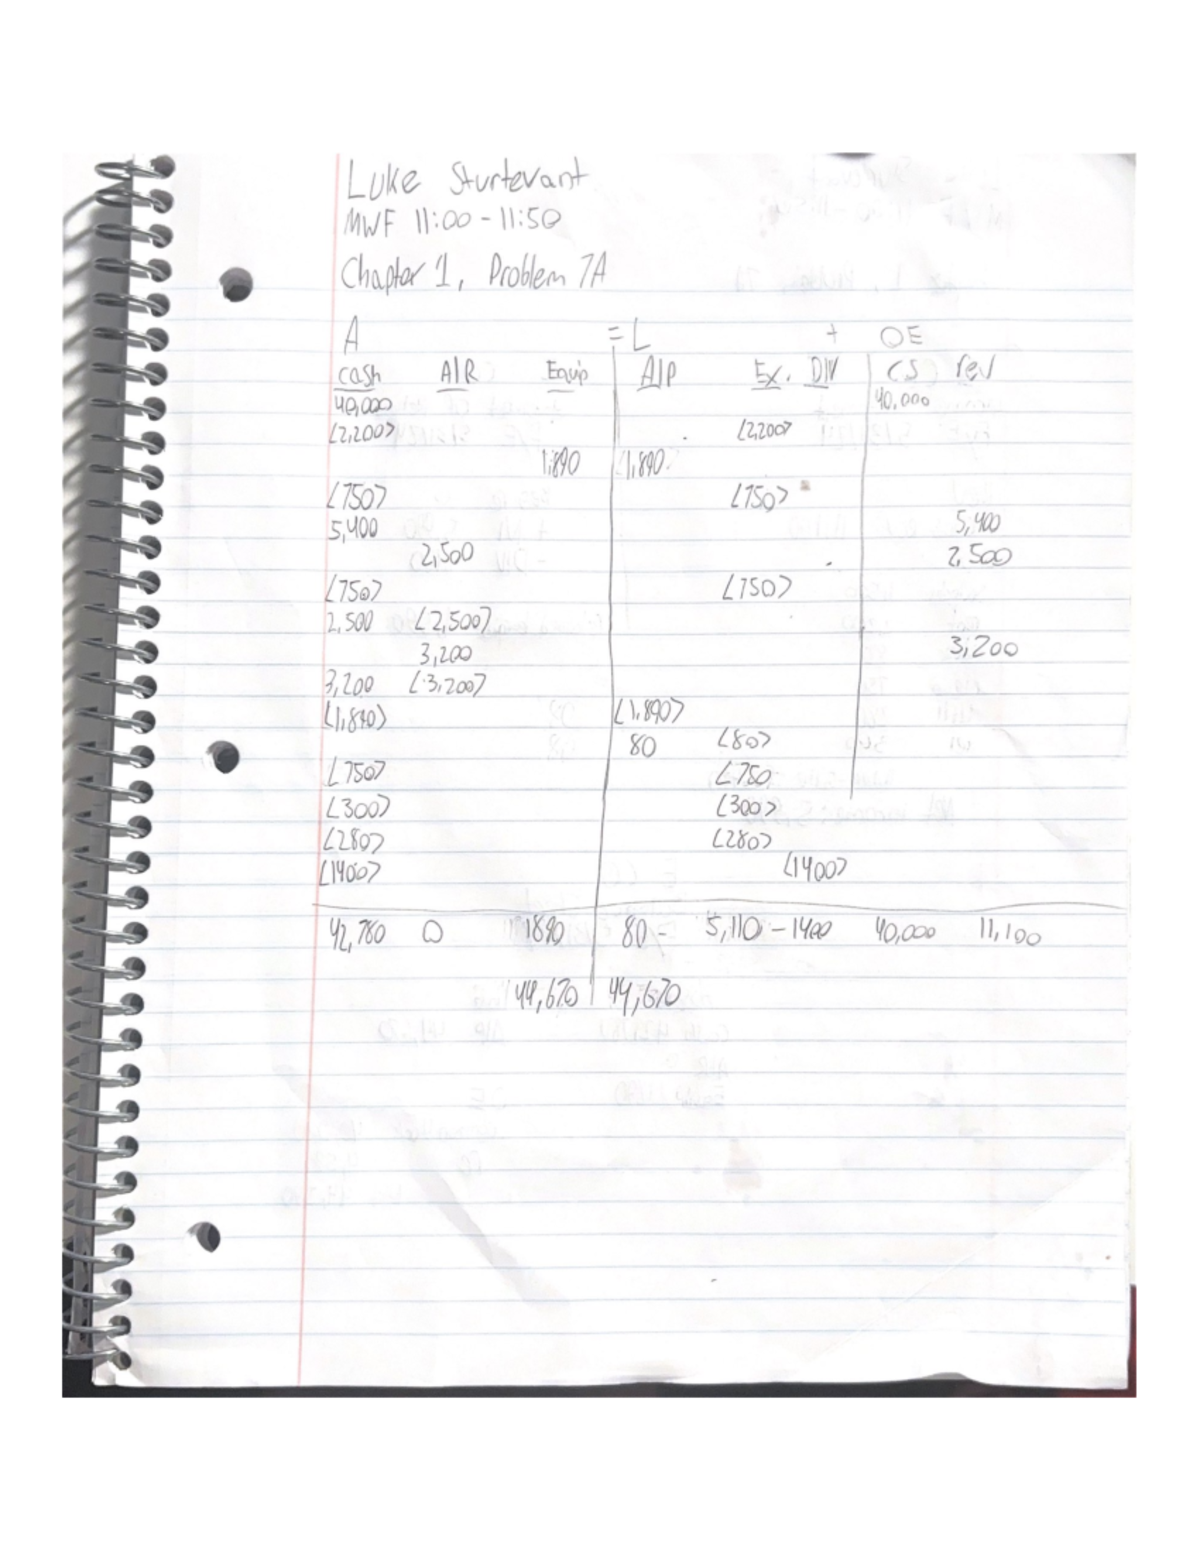 Luke Sturtevant
MWF 11:00 - 11:50
Chapter 1, Problem 7A
A = L + OE
cash A/R Equip A/P Ex. DIV CS rev
40,000 40,000
<2,200> <2,200>
1,890 <1,890>
<750> <750>
5,400 5,400
2,500 2,500
<750> <750>
2,500 <2,500>
3,200 3,200
3,200 <3,200>
<1,890> <1,890>
80 <80>
<750> <750
<300> <300>
<280> <280>
<1400> <1400>
42,780 0 1890 80 - 5,110 - 1400 40,000 11,100
44,670 44,670